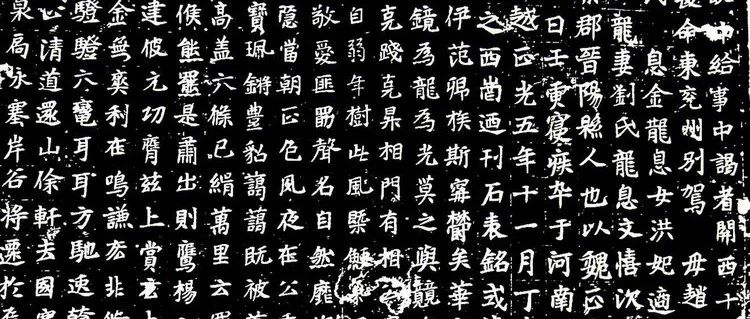 中給事中謁者開西十
命東兗州別駕 毋趙
息金龍息女洪妃適
龍妻劉氏龍息文憘次
郡晉陽縣人也以魏正
日壬寅寢疾卒于河南
越正光五年十一月丁
之西崗迺刊石表銘或
伊范卿族斯實欝矣華
鏡為龍為光莫之與競
克踐克昇相門有相
自弱年樹此風槩鯁
敬愛匪罰聲名自然靡
蔭當朝正色夙夜在公
寶珮鏘豊貂藹藹既被
高盖六條已緝萬里云
候熊羆是蕭出則鷹楊
建彼元功膺茲上賞玄上
金無奕利在鳴謙玄非
驂六轡耳耳方馳逸
心清道還山徐軒去國
泉扃永塞岸谷將遷於